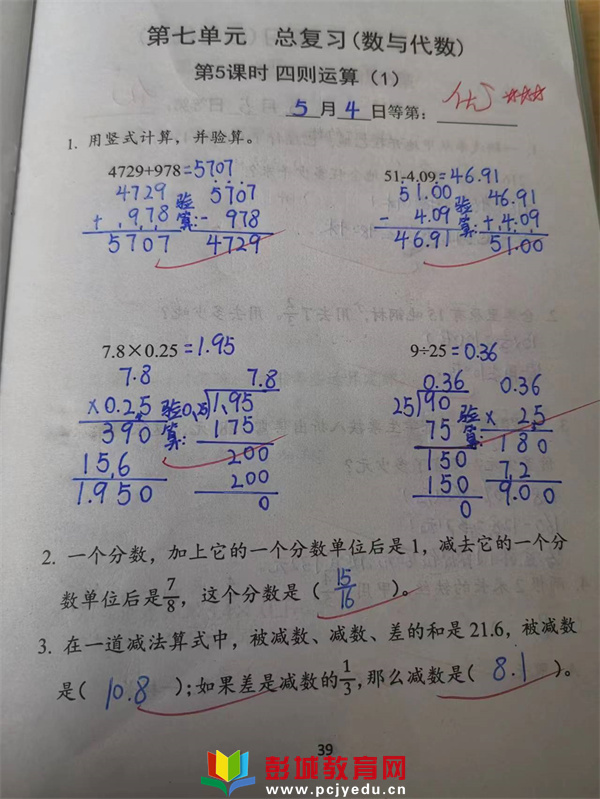 第七单元 总复习(数与代数)
第5课时 四则运算(1)
5月4日等第: 优
1. 用竖式计算,并验算。
4729+978=5707 51-4.09=46.91
4729 验算: 5707 51.00 验算: 46.91
+ 978 - 978 - 4.09 + 4.09
5707 4729 46.91 51.00
7.8×0.25=1.95 9÷25=0.36
7.8 7.8 0.36 0.36
×0.25 验算: 0.25 1.95 25 90 验算: × 25
390 175 75 180
156 200 150 72
1.950 200 150 9.00
0 0
2. 一个分数,加上它的一个分数单位后是1,减去它的一个分
数单位后是7/8,这个分数是( 15/16 )。
3. 在一道减法算式中,被减数、减数、差的和是21.6,被减数
是( 10.8 );如果差是减数的1/3,那么减数是( 8.1 )。
39
彭城教育网
www.pcjyedu.cn